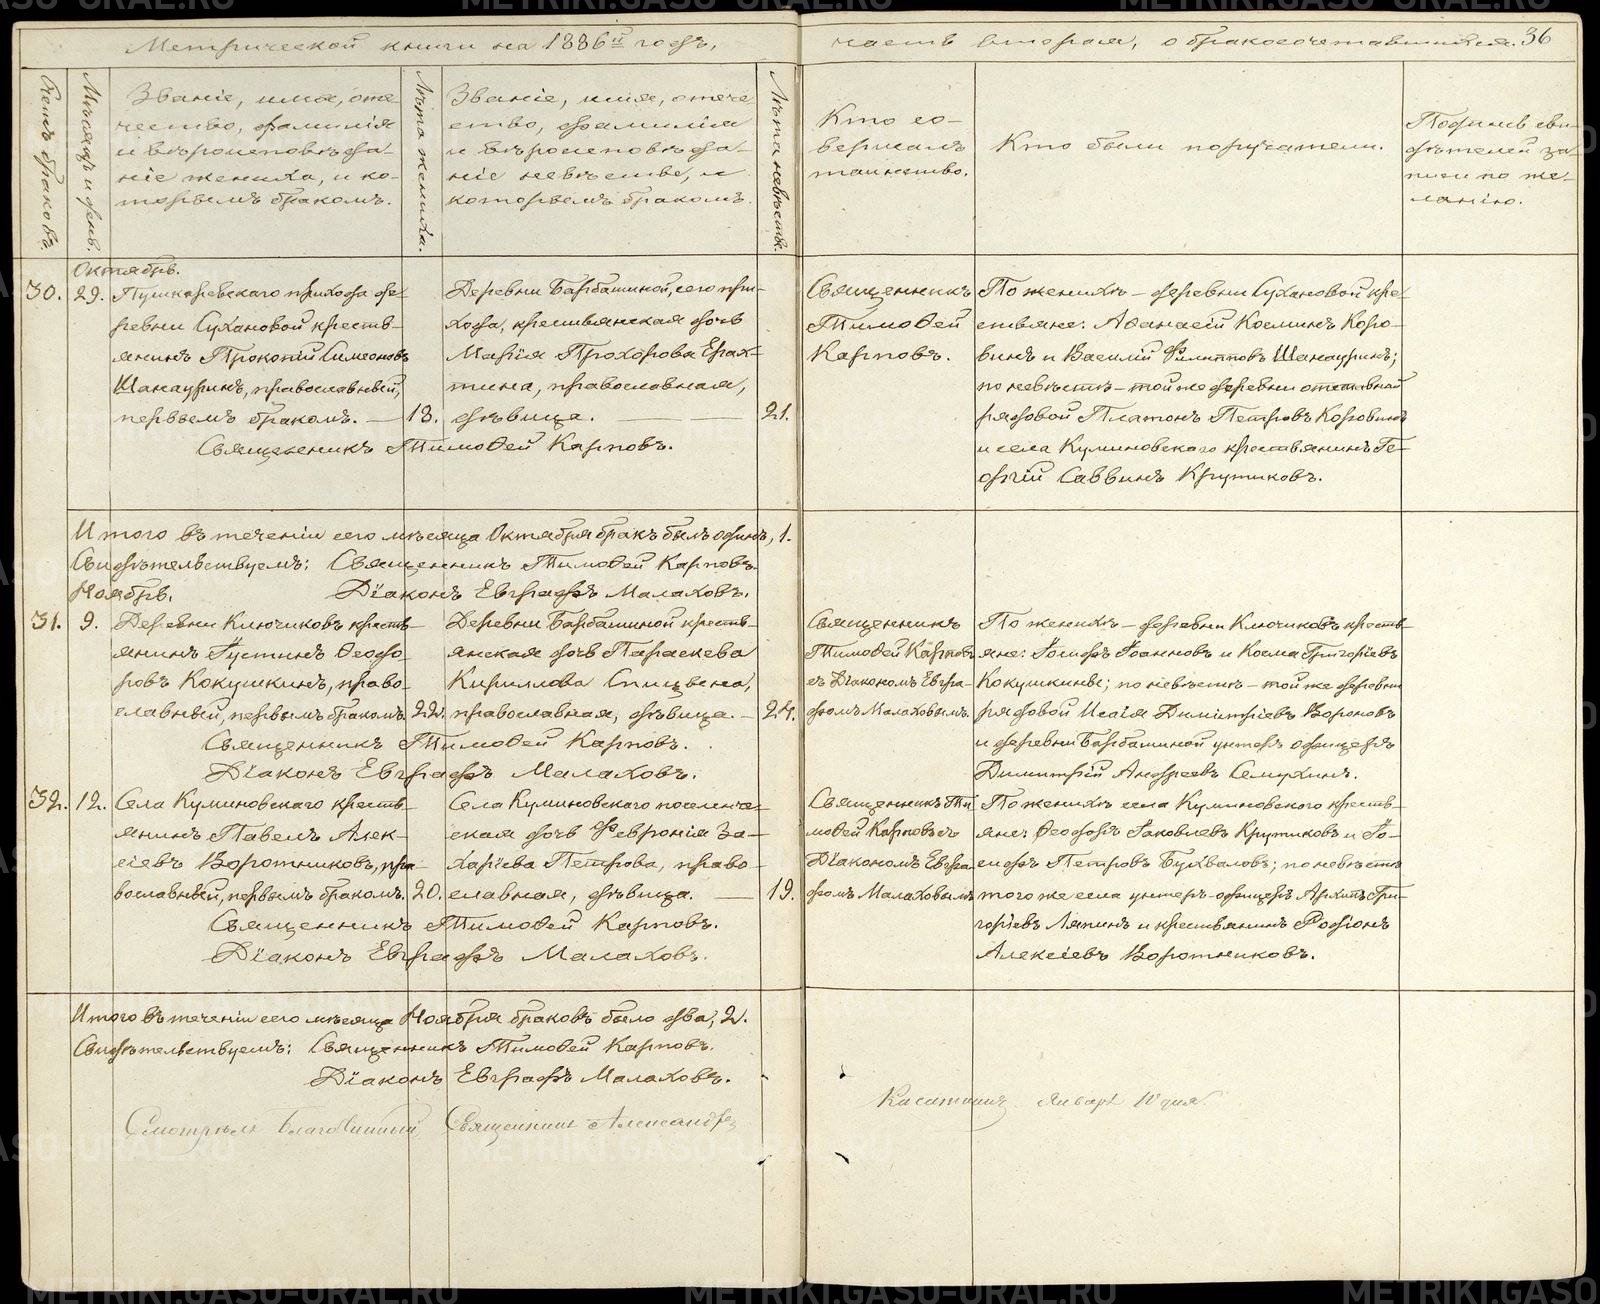 Метрической книги на 1886й годъ,
часть вторая, о бракосочетавшихся. 36
Счетъ браковъ.
Мѣсяцъ и день.
Званіе, имя, оте-
чество, фамилія
и вѣроисповѣда-
ніе жениха, и ко-
торымъ бракомъ.
Лѣта жениха.
Званіе, имя, отече
ство, фамилія
и вѣроисповѣда-
ніе невѣсты, и
которымъ бракомъ.
Лѣта невѣсты.
Кто со-
вершалъ
таинство.
Кто были поручатели.
Подпись сви-
дѣтелей за-
писи по же-
ланію.
Октябрь.
30. 29.
Пушкаревскаго прихода де-
ревни Сухановой кресть-
янинъ Прокопій Симеоновъ
Шанауринъ, православный,
первымъ бракомъ. — 18.
Деревни Барбашиной, сего при-
хода, крестьянская дочь
Марія Прохорова Ерах-
тина, православная,
дѣвица. — 21.
Священникъ Тимоѳей Карповъ.
Священникъ
Тимоѳей
Карповъ.
По женихѣ — деревни Сухановой кре-
стьяне: Аѳанасій Косминъ Коро-
винъ и Василій Филипповъ Шанауринъ;
по невѣстѣ — той же деревни отставной
рядовой Платонъ Петровъ Коровинъ
и села Куминовскаго крестьянинъ Ге-
оргій Саввинъ Крутиковъ.
Итого въ теченіи сего мѣсяца Октября бракъ былъ одинъ, 1.
Свидѣтельствуемъ: Священникъ Тимоѳей Карповъ.
Діаконъ Евграфъ Малаховъ.
Ноябрь.
31. 9.
Деревни Ключиковъ кресть-
янинъ Іустинъ Ѳеодо-
ровъ Кокушкинъ, право-
славный, первымъ бракомъ. 22.
Деревни Барбашиной кресть-
янская дочь Параскева
Кириллова Спицына,
православная, дѣвица. — 24.
Священникъ Тимоѳей Карповъ.
Діаконъ Евграфъ Малаховъ.
Священникъ
Тимоѳей Карповъ
съ Діакономъ Евгра-
фомъ Малаховымъ.
По женихѣ — деревни Ключиковъ кресть-
яне: Іосифъ Іоанновъ и Косма Григорьевъ
Кокушкины; по невѣстѣ — той же деревни
рядовой Исаія Димитріевъ Вороновъ
и деревни Барбашиной унтеръ офицеръ
Димитрій Андреевъ Семухинъ.
32. 12.
Села Куминовскаго кресть-
янинъ Павелъ Алек-
сіевъ Воротниковъ, пра-
вославный, первымъ бракомъ. 20.
Села Куминовскаго поселенче-
ская дочь Февронія За-
харіева Петрова, право-
славная, дѣвица. — 19.
Священникъ Тимоѳей Карповъ.
Діаконъ Евграфъ Малаховъ.
Священникъ Ти-
моѳей Карповъ съ
Діакономъ Евгра-
фомъ Малаховымъ
По женихѣ села Куминовскаго кресть-
яне: Ѳеодоръ Іаковлевъ Крутиковъ и Іо-
сифъ Петровъ Бухваловъ; по невѣстѣ
того же села унтеръ-офицеръ Архипъ Гри-
горіевъ Ляпинъ и крестьянинъ Родіонъ
Алексіевъ Воротниковъ.
Итого въ теченіи сего мѣсяца Ноября браковъ было два, 2.
Свидѣтельствуемъ: Священникъ Тимоѳей Карповъ.
Діаконъ Евграфъ Малаховъ.
Смотрѣлъ Благочинный Священникъ Александръ
Январь 10 дня.
METRIKI.GASO-URAL.RU